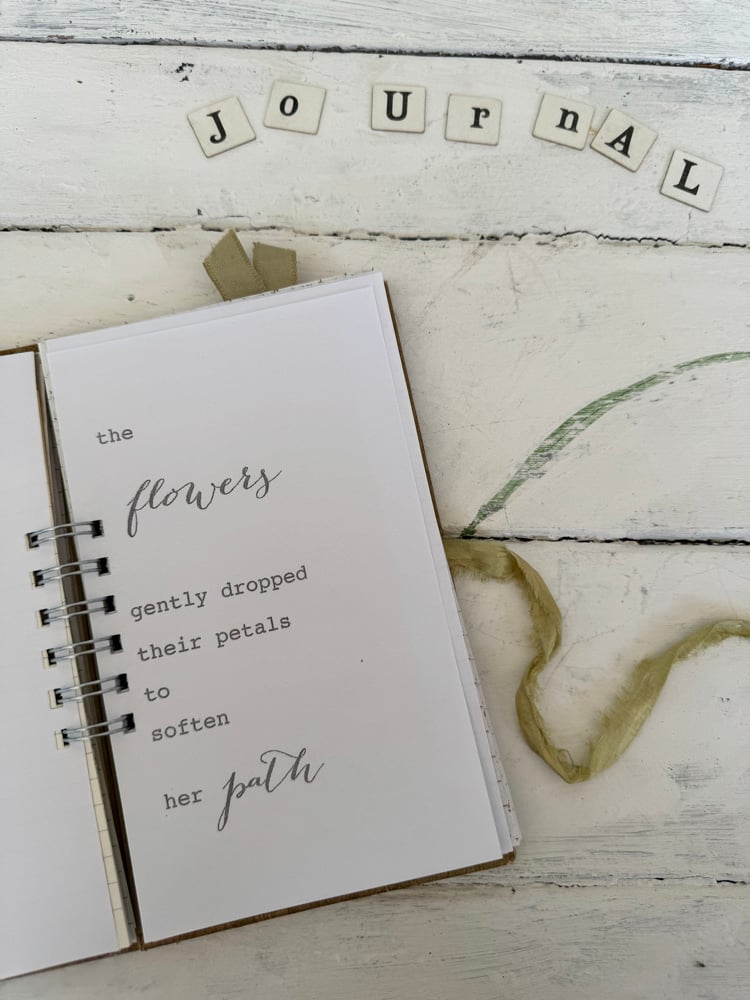 JoUrnAL
the
flowers
gently dropped
their petals
to
soften
her path